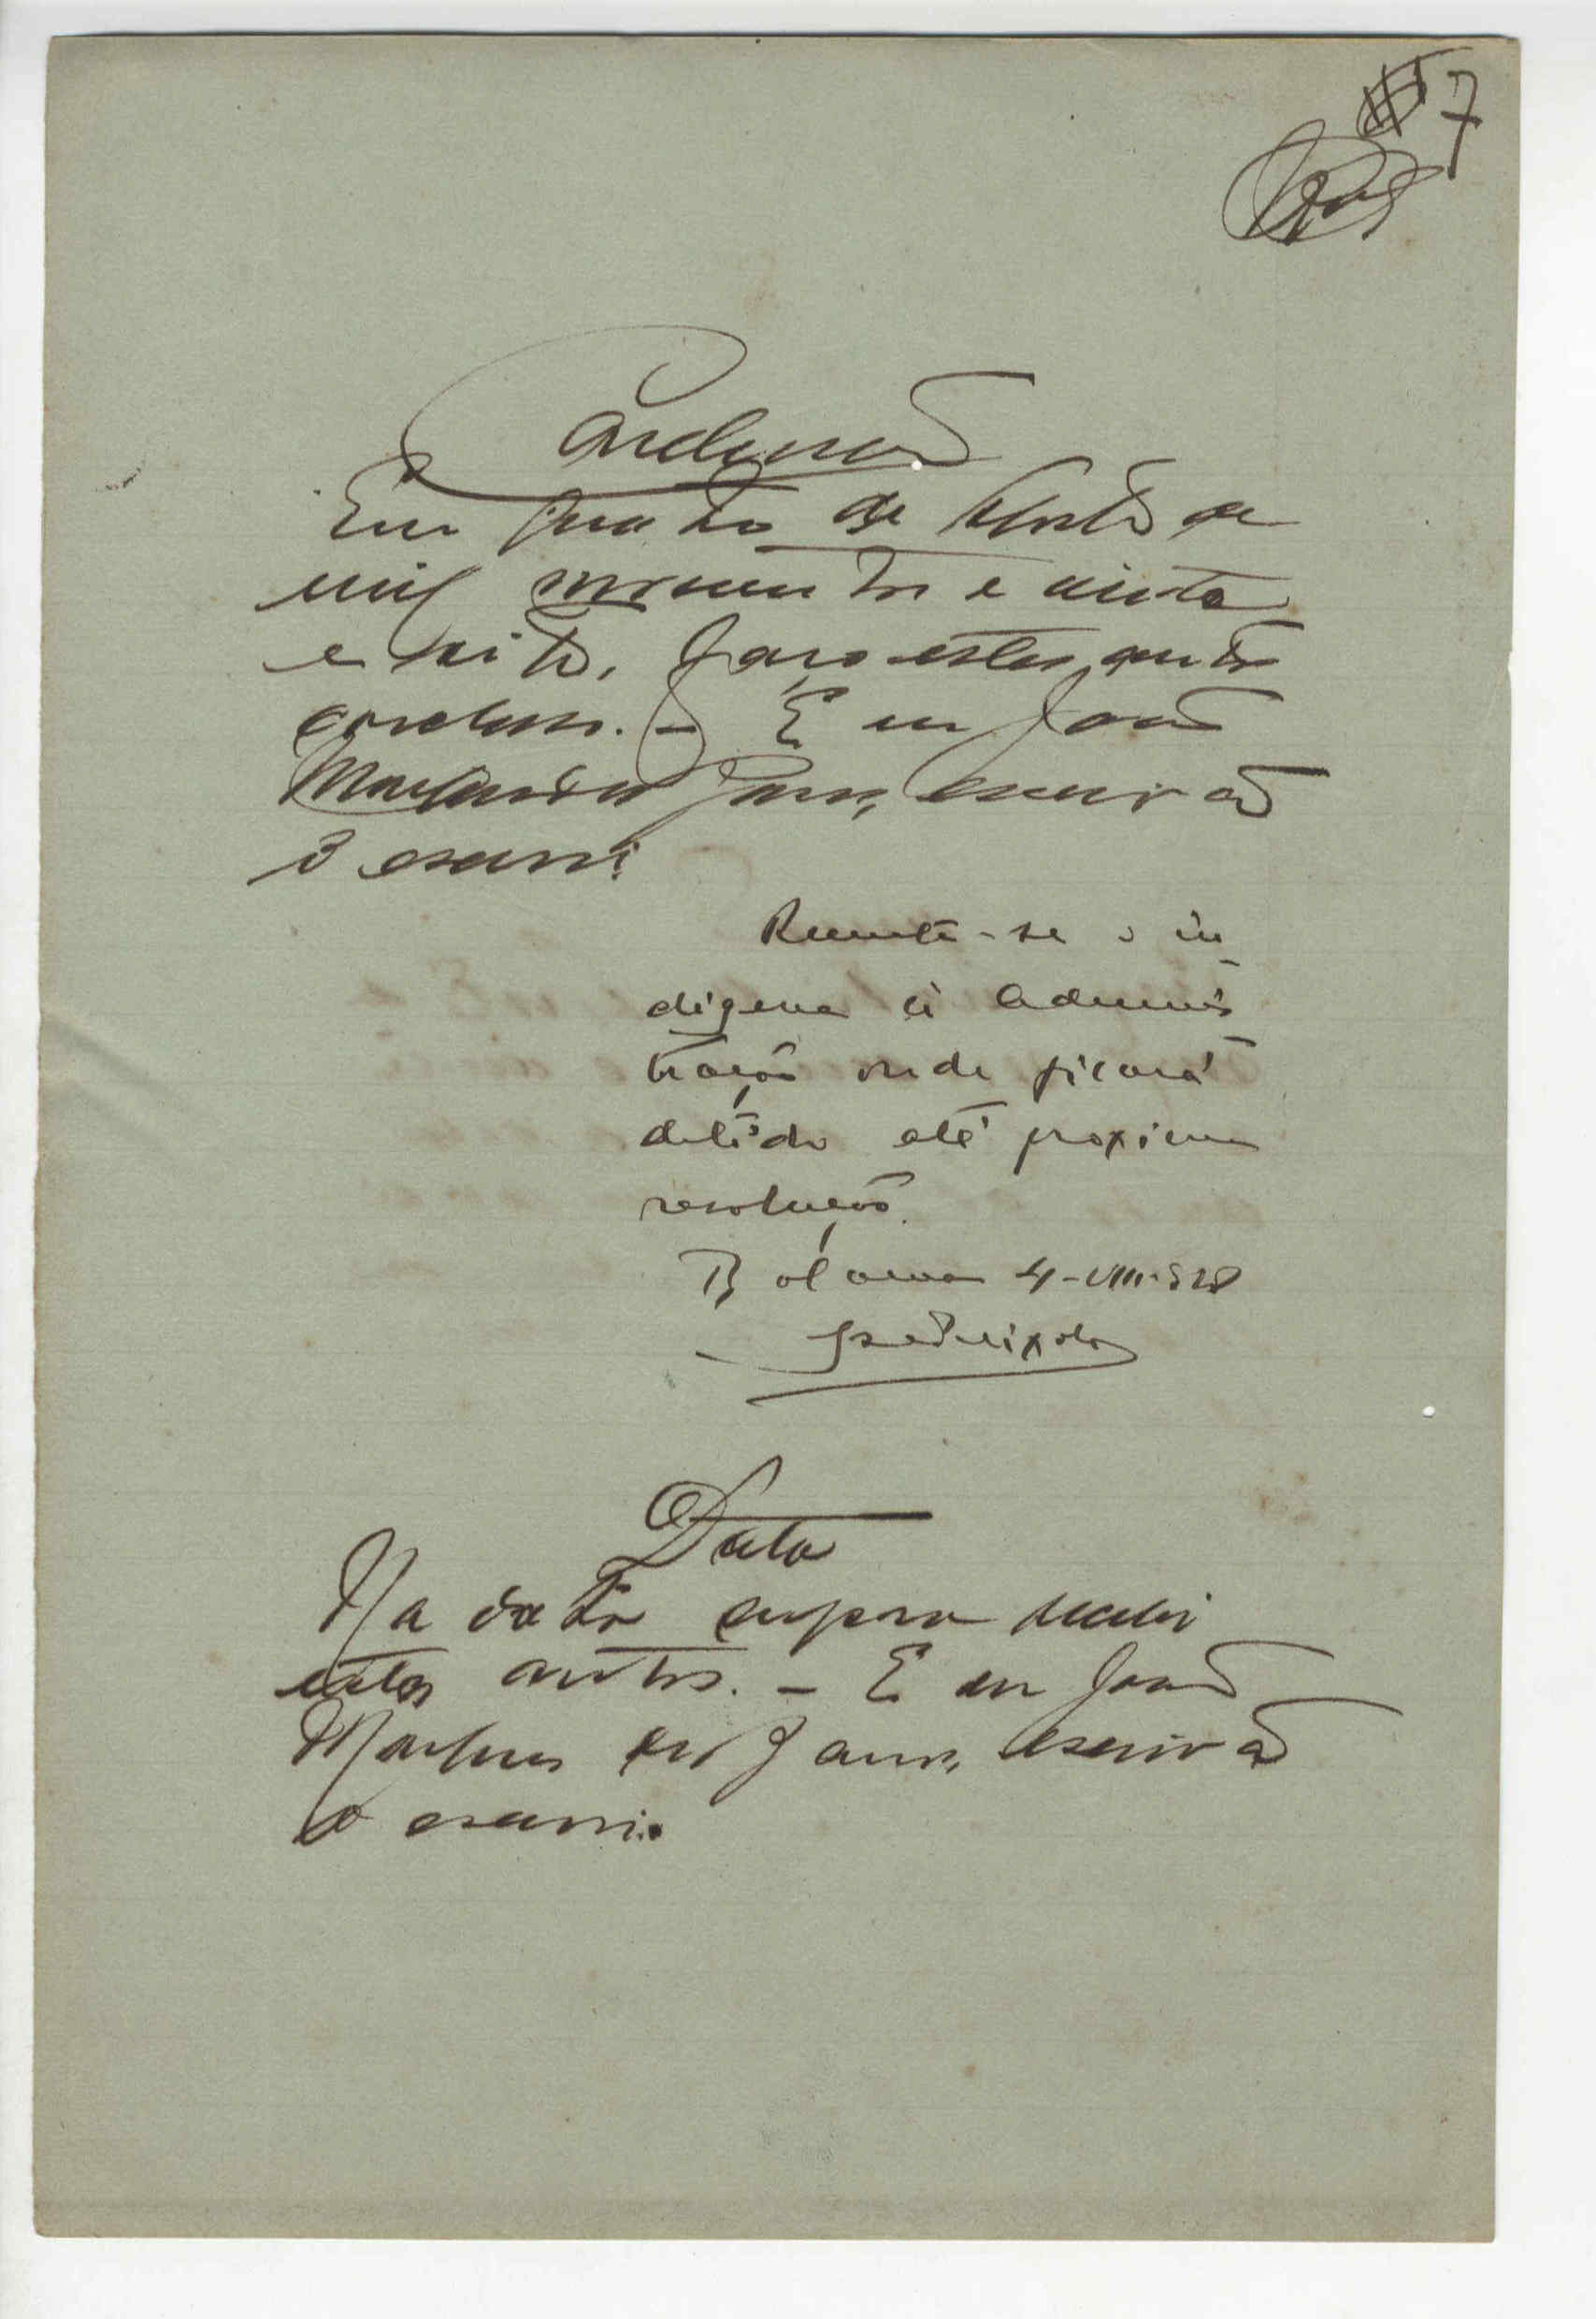 7
Conclusão
Em quatro de Agosto de
mil novecentos e vinte
e oito, faço estes autos
conclusos. – E eu João
escrivão
o escrevi
Remeta-se o in
digena á Adminis
tração onde ficará
detido até proxima
resolução.
Bolama 4-VIII-928
Data
Na data supra recebi
estes autos. – E eu João
escrivão
o escrevi.